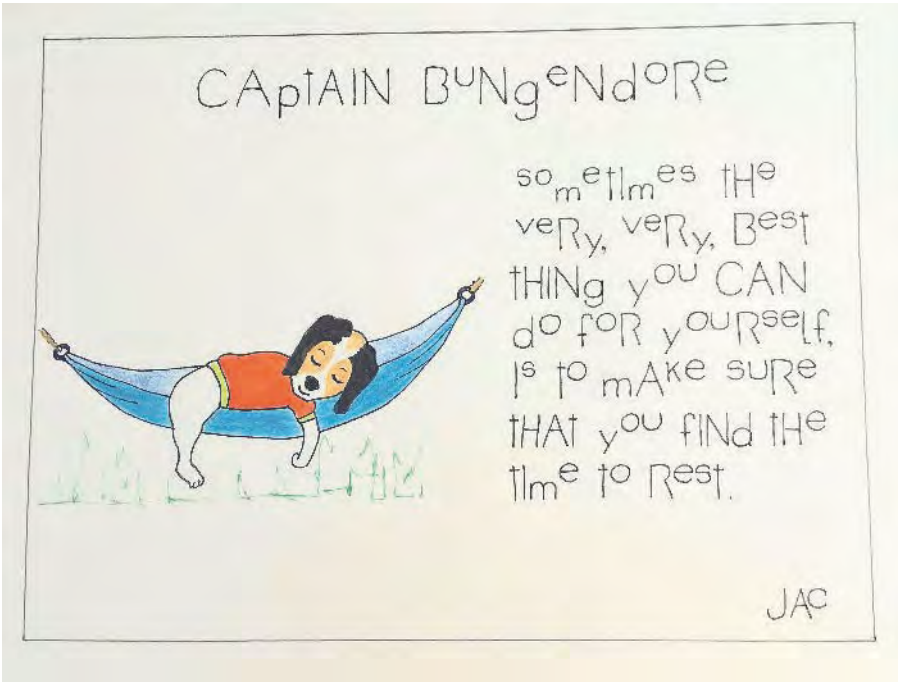 CAptAIN BuNgeNdoRe
sometImes tHe
veRy, veRy, Best
tHINg you CAN
do foR youRself,
Is to mAKe suRe
tHAt you fINd tHe
tIme to Rest.
JAC